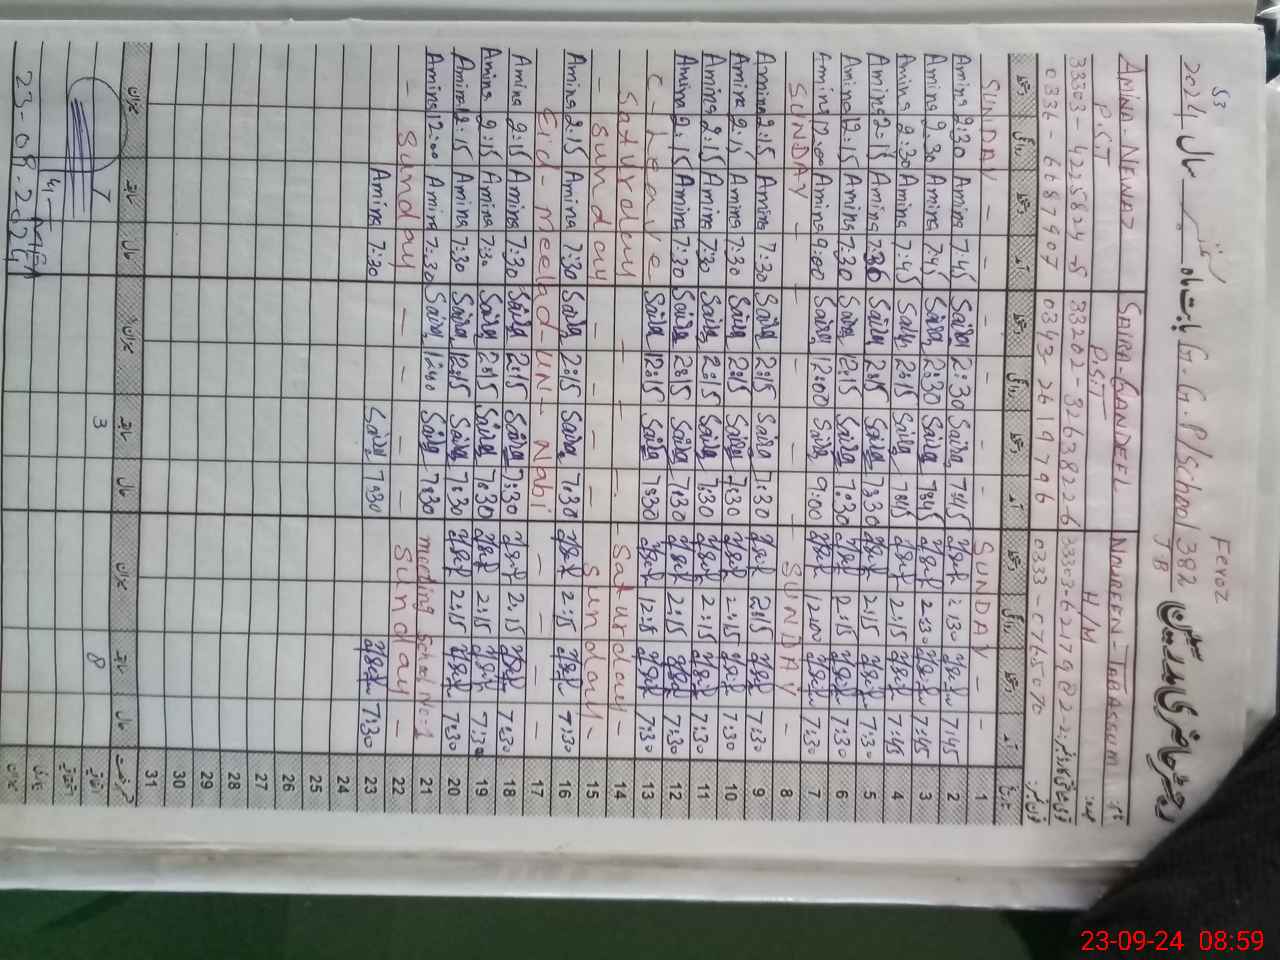 Feroz
53
رجسٹر حاضری مدرسین G.G.P/School 382 JB بابت ماہ ستمبر سال 2024
نام NOUREEN-TABASSUM SAIRA-GANDEEL AMINA-NENAZ
H/M P.S.T P.S.T
33303-6217902-2 33202-3263822-6 33303-4225824-8
0333-0765070 0343-2619796 0336-6687907
تاریخ آمد دستخط روانگی دستخط آمد دستخط روانگی دستخط آمد دستخط روانگی دستخط
1 - SUNDAY - - - - - SUNDAY
2 7:45 2:30 7:45 Saira 2:30 Saira 7:45 Amina 2:30 Amina
3 7:45 2:30 7:45 Saira 2:30 Saira 7:45 Amina 2:30 Amina
4 7:45 2:15 7:45 Saira 2:15 Saira 7:45 Amina 2:30 Amina
5 7:30 2:15 7:30 Saira 2:15 Saira 7:30 Amina 2:15 Amina
6 7:30 12:15 7:30 Saira 12:15 Saira 7:30 Amina 12:15 Amina
7 7:30 12:00 9:00 Saira 12:00 Saira 9:00 Amina 12:00 Amina
8 - SUNDAY - - - - - SUNDAY
9 7:30 2:15 7:30 Saira 2:15 Saira 7:30 Amina 2:15 Amina
10 7:30 2:15 7:30 Saira 2:15 Saira 7:30 Amina 2:15 Amina
11 7:30 2:15 7:30 Saira 2:15 Saira 7:30 Amina 2:15 Amina
12 7:30 2:15 7:30 Saira 2:15 Saira 7:30 Amina 2:15 Amina
13 7:30 12:15 7:30 Saira 12:15 Saira C-Leave
14 - Saturday - - - - Saturday
15 - Sunday - - - - Sunday -
16 7:30 2:15 7:30 Saira 2:15 Saira 7:30 Amina 2:15 Amina
17 - - - Eid-meelad-UN-Nabi
18 7:30 2:15 7:30 Saira 2:15 Saira 7:30 Amina 2:15 Amina
19 7:30 2:15 7:30 Saira 2:15 Saira 7:30 Amina 2:15 Amina
20 7:30 2:15 7:30 Saira 12:15 Saira 7:30 Amina 2:15 Amina
21 meeding School No-1 7:30 Saira 12:00 Saira 7:30 Amina 12:00 Amina
22 - Sunday - - - - Sunday -
23 7:30 7:30 Saira 7:30 Amina
24
25
26
27
28
29
30
31
8 3 7
AEO
23-08-2024
23-09-24 08:59